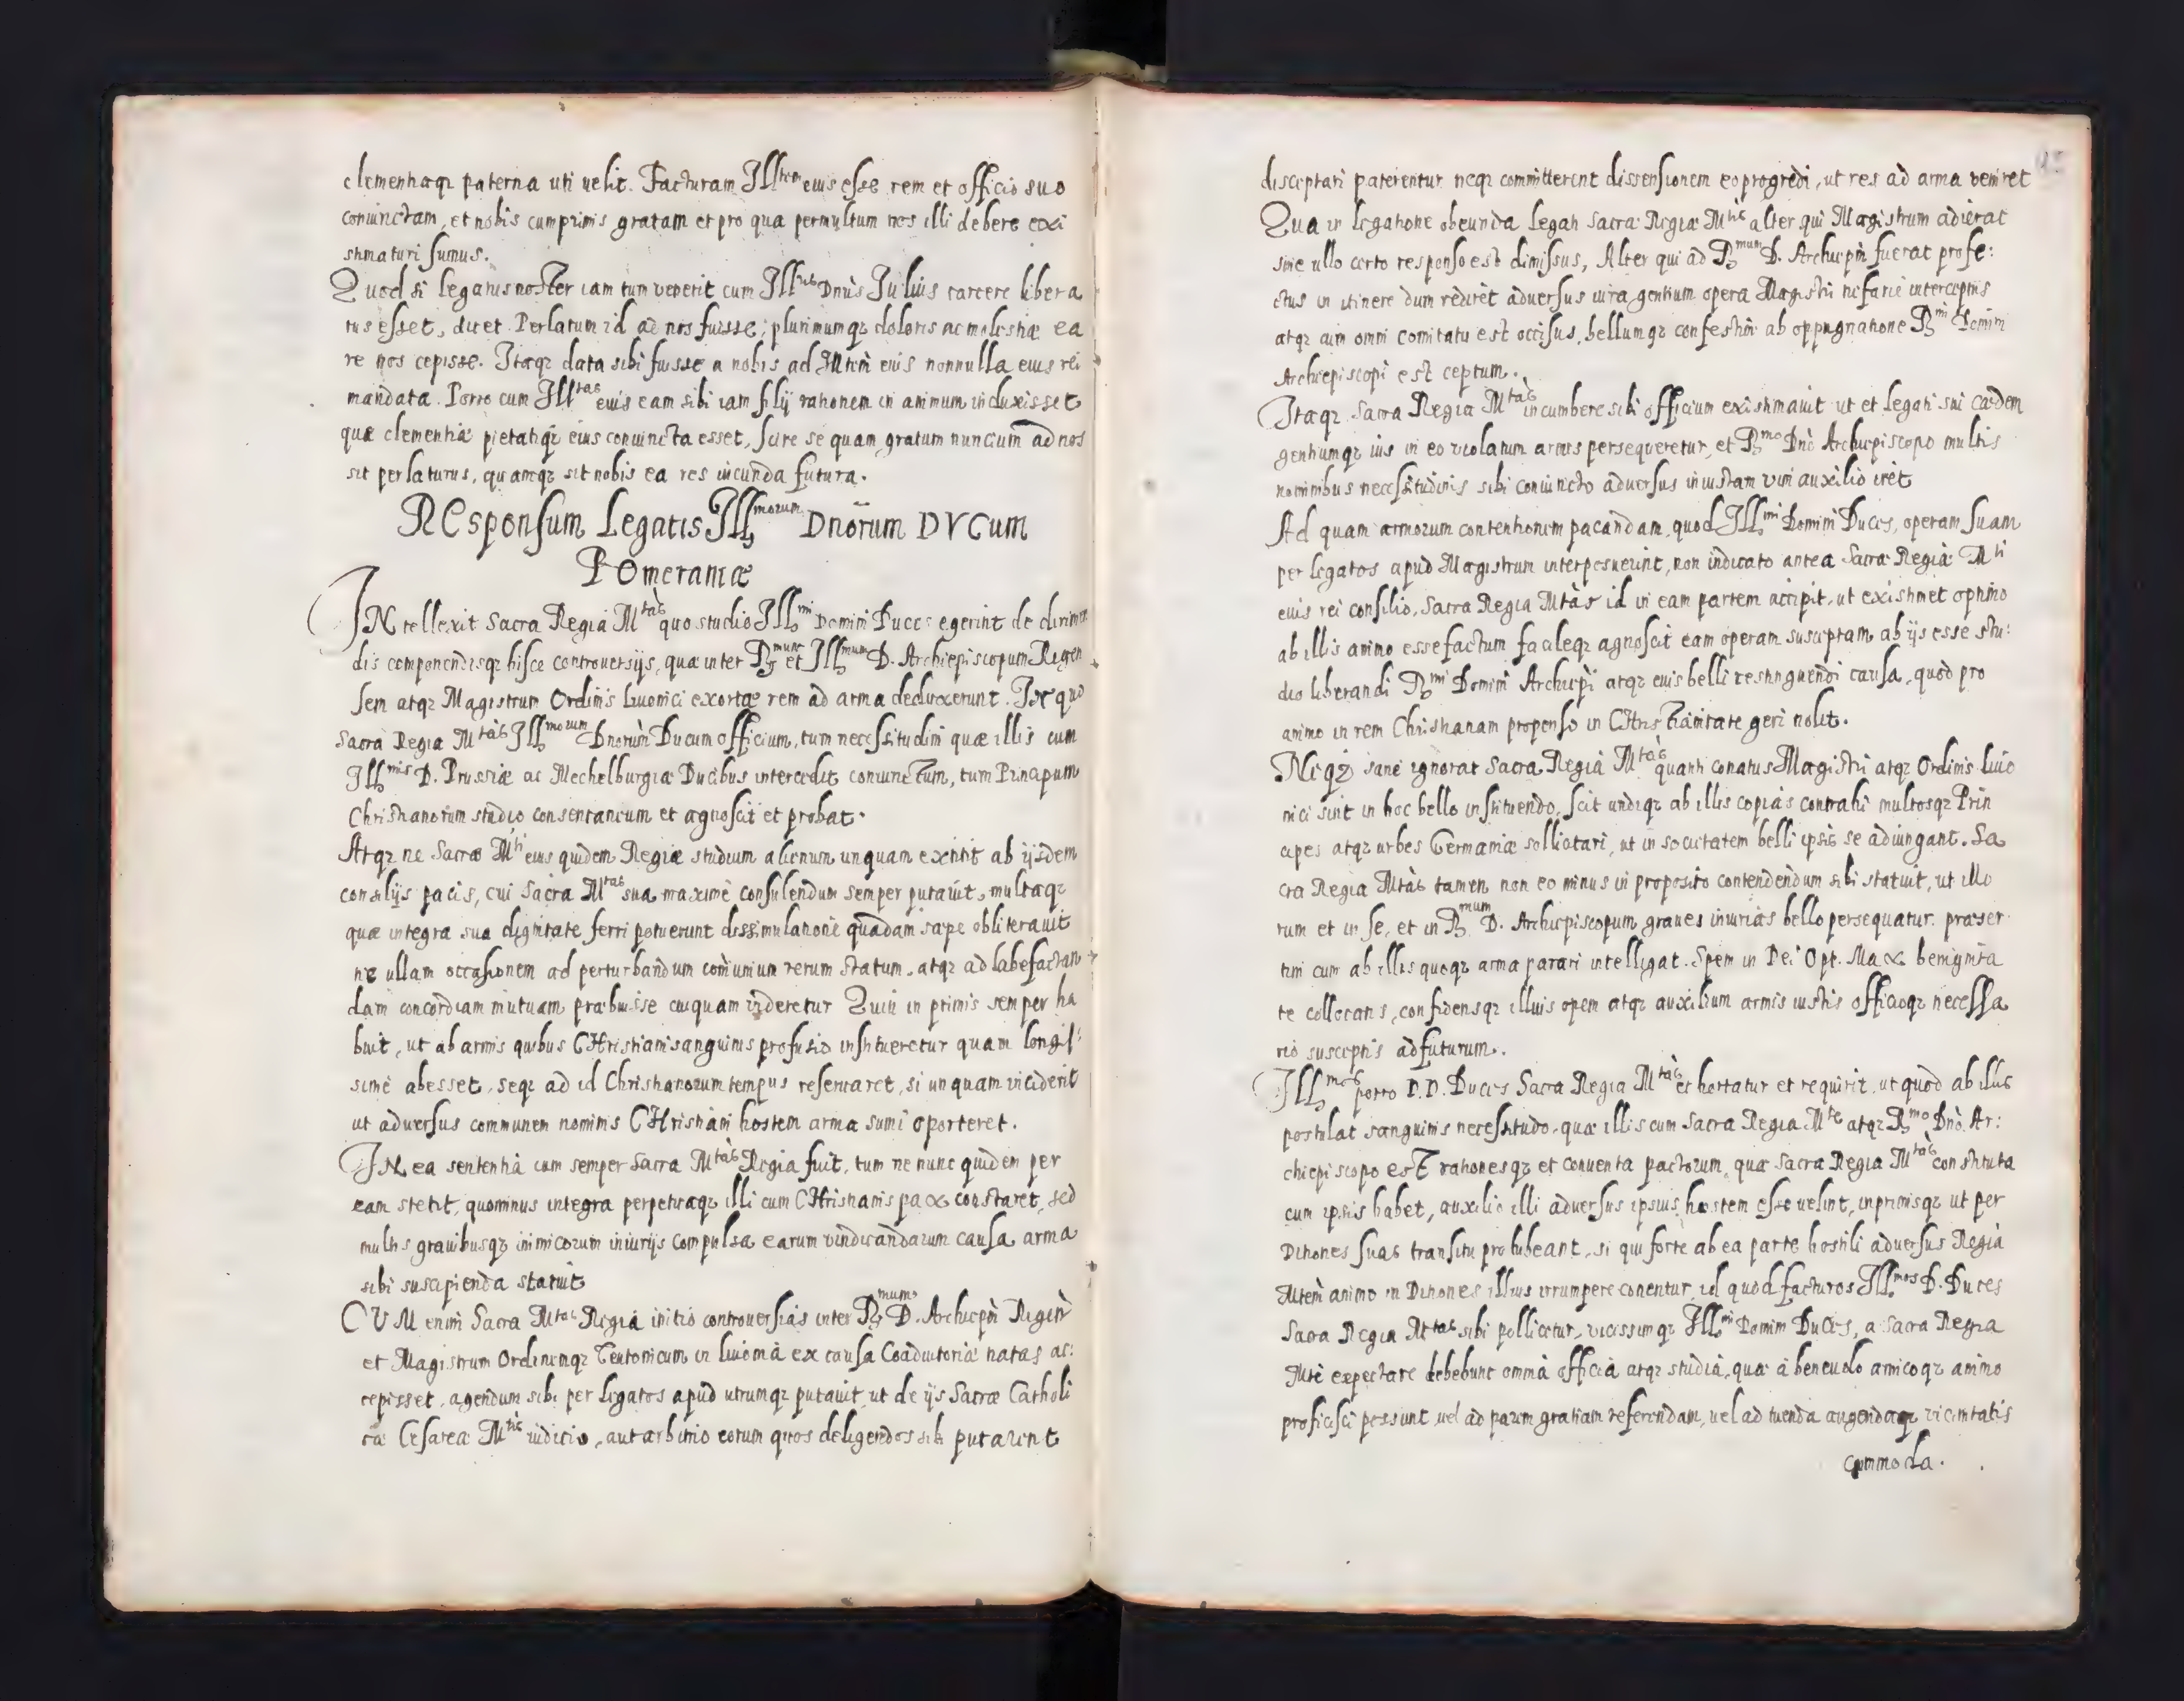 clementiaqz paterna uti uelit. Facturam Ill^tem eius esse rem et officio suo
coniunctam, et nobis cumprimis gratam et pro qua permultum nos illi debere exi
stimaturi sumus.
Quod si legatus noster iam tum venerit cum Ill^ris Dnus Julius carcere libera
tus esset, dicet Perlatum id ad nos fuisse; plurimumqz doloris ac molestiæ ea
re nos cepisse. Itaqz data sibi fuisse a nobis ad Mtem eius nonnulla eius rei
mandata. Porro cum Ill^tas eius eam sibi iam filij rationem in animum induxisset
quæ clementiæ pietatiqz eius coniuncta esset, scire se quam gratum nuncium ad nos
sit perlaturus, quamqz sit nobis ea res iucunda futura.
REsponsum Legatis Ill^morum Dnorum DVCum
POmeraniæ
INtellexit Sacra Regia M^tas quo studio Ill^mi Domini Duces egerint de dirimen
dis componendisqz hisce controuersijs, quæ inter R^mum et Ill^mum D. Archiepiscopum Rigen
sem atqz Magistrum Ordinis Liuonici exortæ rem ad arma deduxerunt. In quo
Sacra Regia M^tas Ill^morum Dnorum Ducum officium, tum necessitudini quæ illis cum
Ill^mis D. Prussiæ ac Mechelburgiæ Ducibus intercedit coniunctum, tum Principum
Christianorum studio consentaneum et agnoscit et probat.
Atqz ne Sacræ M^ti eius quidem Regiæ studium alienum unquam extitit ab ijsdem
consilijs pacis, cui Sacra M^tas sua maximè consulendum semper putauit, multaqz
quæ integra sua dignitate ferri potuerunt dissimulatione quadam sæpe obliterauit
ne ullam occasionem ad perturbandum comunium rerum statum, atqz ad labefactan
dam concordiam mutuam præbuisse cuiquam uideretur Quin in primis semper ha
buit, ut ab armis quibus CHristiani sanguinis profusio institueretur quam longis:
simè abesset, seqz ad id Christianorum tempus reseruaret, si unquam inciderit
ut aduersus communem nominis CHristiani hostem arma sumi oporteret.
IN ea sententia cum semper Sacra M^tas Regia fuit, tum ne nunc quidem per
eam stetit, quominus integra perpetuaqz illi cum CHristianis pax constaret, sed
multis grauibusqz inimicorum iniurijs compulsa earum vindicandarum causa arma
sibi suscipienda statuit
CVM enim Sacra M^tas Regia initio controuersias inter R^mum D. Archiepm Rigen
et Magistrum Ordinemqz Teutonicum in Liuonia ex causa Coadiutoriæ natas ac:
cepisset, agendum sibi per Legatos apud utrumqz putauit, ut de ijs Sacræ Catholi
cæ Cesareæ M^tis iudicio, aut arbitrio eorum quos deligendos sibi putarent
disceptari paterentur neqz committerent dissensionem eo progredi, ut res ad arma veniret
Qua in legatione obeunda legati Sacræ Regiæ M^tis alter qui Magistrum adierat
sine ullo certo responso est dimissus, Alter qui ad R^mum D. Archiepm fuerat profe:
ctus in itinere dum rediret aduersus iura gentium opera Magistri nefarie interceptus
atqz cum omni comitatu est occisus, bellumqz confestim ab oppugnatione R^mi Domini
Archiepiscopi est ceptum.
Itaqz Sacra Regia M^tas incumbere sibi officium existimauit ut et legati sui cædem
gentiumqz ius in eo violatum armis persequeretur, et R^mo Dno Archiepiscopo multis
nominibus necessitudinis sibi coniuncto aduersus iniustam vim auxilio iret
Ad quam armorum contentionem pacandam, quod Ill^mi Domini Duces, operam suam
per legatos apud Magistrum interposuerint, non indicato antea Sacræ Regiæ M^ti
eius rei consilio, Sacra Regia Mtas id in eam partem accipit, ut existimet optimo
ab illis animo esse factum facileqz agnoscit eam operam susceptam ab ijs esse stu:
dio liberandi R^mi Domini Archiepi atqz eius belli restinguendi causa, quod pro
animo in rem Christianam propenso in CHristianitate geri nolit.
Neqz sane ignorat Sacra Regia M^tas quanti conatus Magistri atqz Ordinis Liuo
nici sint in hoc bello instituendo, scit undiqz ab illis copias contrahi multosqz Prin
cipes atqz urbes Germaniæ sollicitari, ut in societatem belli ipsis se adiungant. Sa
cra Regia Mtas tamen non eo minus in proposito contendendum sibi statuit, ut illo
rum et in se, et in R^mum D. Archiepiscopum graues iniurias bello persequatur. præser
tim cum ab illis quoqz arma parari intelligat. Spem in Dei Opt. Max benignita
te collocans, confidensqz illius opem atqz auxilium armis iustis officioqz necessa
rio susceptis adfuturum.
Ill^mos porro D.D. Duces Sacra Regia M^tas et hortatur et requirit, ut quod ab illis
postulat sanguinis necessitudo, quæ illis cum Sacra Regia M^te atqz R^mo Dno. Ar:
chiepiscopo est rationesqz et conuenta pactorum, quæ Sacra Regia M^tas constituta
cum ipsis habet, auxilio illi aduersus ipsius hostem esse uelint, inprimisqz ut per
Ditiones suas transitu prohibeant, si qui forte ab ea parte hostili aduersus Regiã
Mtem animo in Ditiones illius irrumpere conentur, id quod facturos Ill^mos D. Duces
Sacra Regia M^tas sibi pollicetur, vicissimqz Ill^mi Domini Duces, a Sacra Regia
Mte expectare debebunt omnia officia atqz studia, quæ à beneuolo amicoqz animo
proficisci possunt, uel ad parem gratiam referendam, uel ad tuenda augendaqz vicinitatis
commoda.